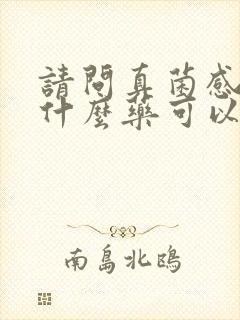 請問真菌感
什麼藥可以
南島北鴎